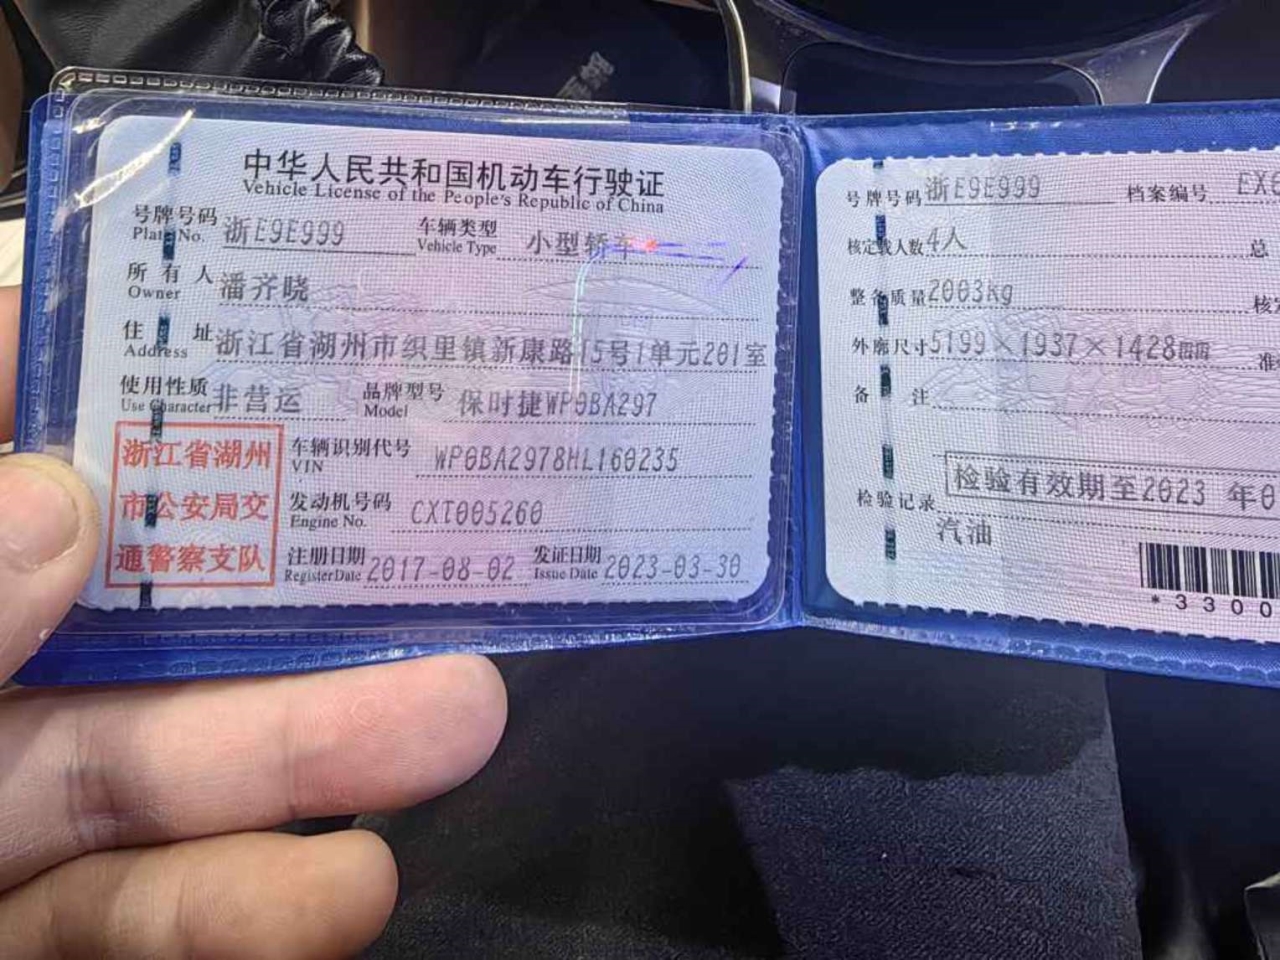 中华人民共和国机动车行驶证
Vehicle License of the People's Republic of China
号牌号码 浙E9E999 车辆类型 小型轿车
Plate No. Vehicle Type
所有人 潘齐晓
Owner
住址 浙江省湖州市织里镇新康路15号1单元201室
Address
使用性质 非营运 品牌型号 保时捷WP0BA297
Use Character Model
浙江省湖州
市公安局交
通警察支队
车辆识别代号 WP0BA2978HL160235
VIN
发动机号码 CXT005260
Engine No.
注册日期 2017-08-02 发证日期 2023-03-30
Register Date Issue Date
号牌号码 浙E9E999 档案编号
核定载人数 4人 总
整备质量 2003kg 核定
外廓尺寸 5199×1937×1428mm 准
备注
检验有效期至2023 年0
检验记录
汽油
*3300